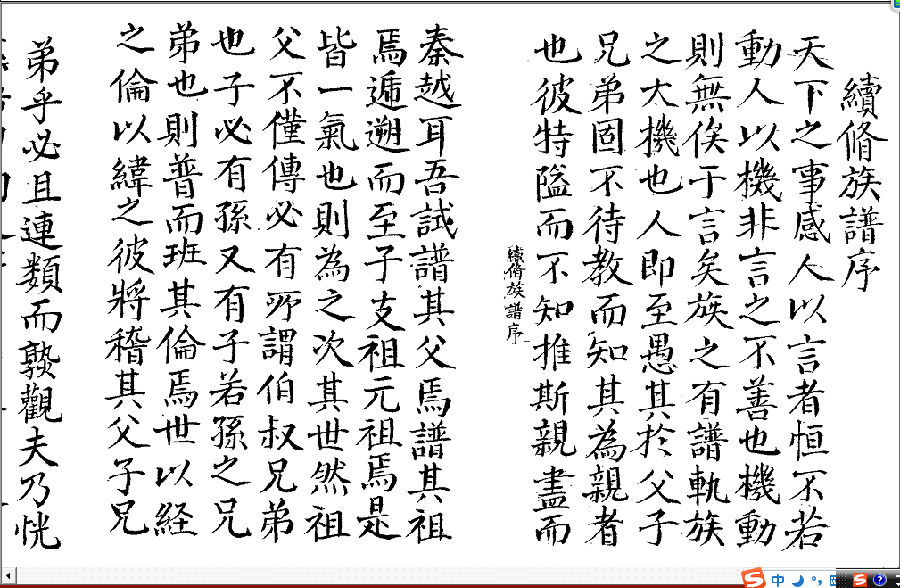 續脩族譜序
天下之事感人以言者恒不若
動人以機非言之不善也機動
則無俟于言矣族之有譜軌族
之大機也人即至愚其於父子
兄弟固不待教而知其為親者
也彼特隘而不知推斯親盡而
續脩族譜序
秦越耳吾試譜其父焉譜其祖
焉遞遡而至子支祖元祖焉是
皆一氣也則為之次其世然祖
父不僅傳必有所謂伯叔兄弟
也子必有孫又有子若孫之兄
弟也則普而班其倫焉世以経
之倫以緯之彼將稽其父子兄
弟乎必且連類而觀夫乃恍
中